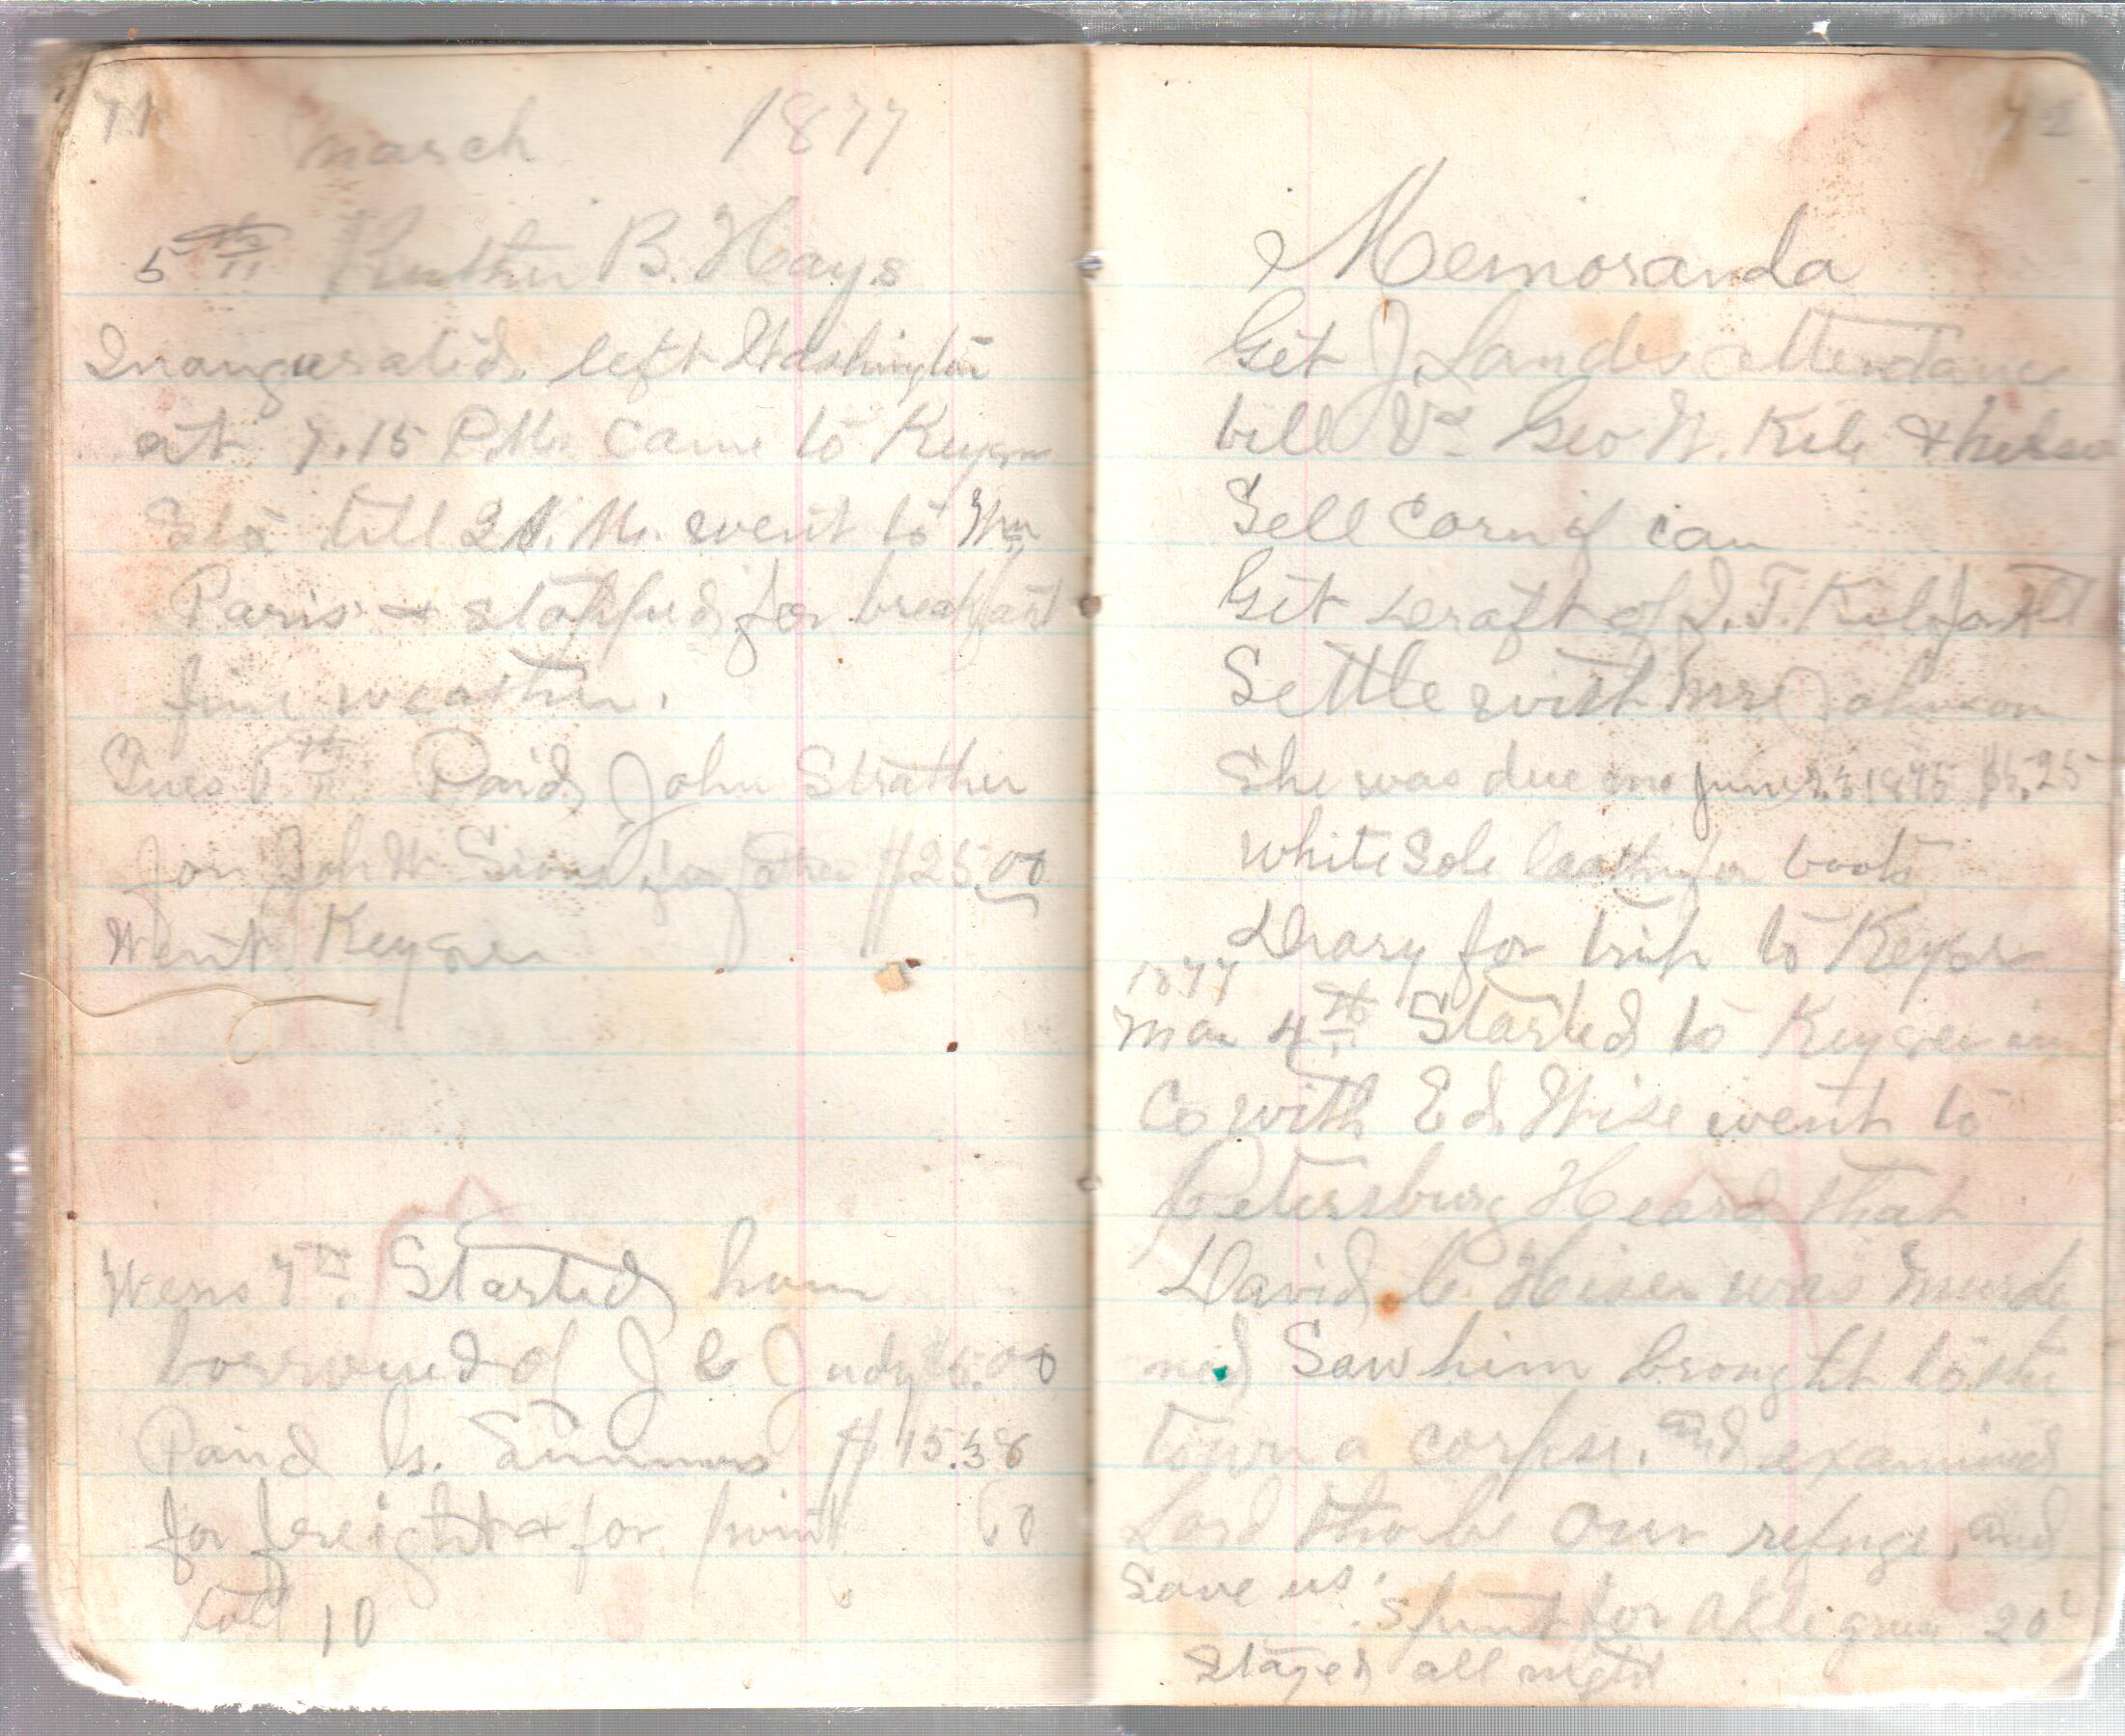 71
March 1877
5th Ruther B. Hays
Inaugurated. left Washington
at 7.15 P.M. came to Keyser
till 2 A. M. went to
Paris & stopped for breakfast
fine weather.
Tues 6th Paid John Strather
for father $25.00
Went Keyser
Wens 7th. Started hom
borrowed of J C Judy $5.00
Paid G. $15.38
for freight & for print 60
toll 10
72
Memoranda
Get J. Landes attendance
bill Vs Geo W. Kile &
Sell Corn if can
Get draft of
Settle with Mrs Johnson
She was due me June 1875 25
white Sole leather for boots
Diary for trip to Keyser
1877
Mar 4th Started to Keyser in
Co with Ed. Wise went to
Petersburg Heard that
David C. was murde
red Saw him brought to the
town a corpse. and examined
Lord thou be our refuge, and
Save us.
Spent for 20c
Stayed all night